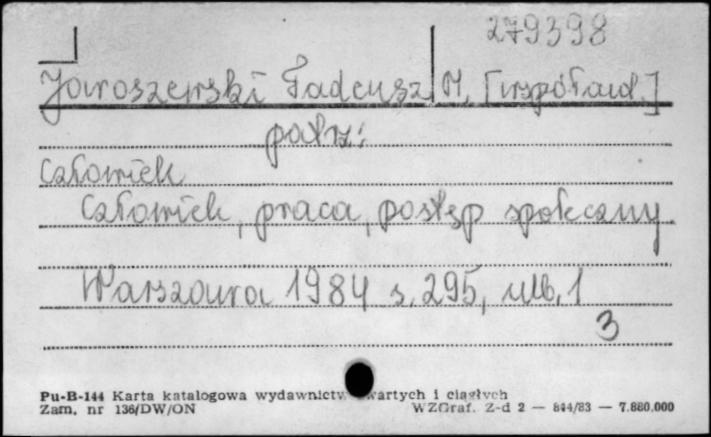 279398
Jaroszewski Tadeusz M. [współaut.]
patrz:
Człowiek
Człowiek, praca, postęp społeczny.
Warszawa 1984 s. 295, nlb. 1
3
Pu-B-144 Karta katalogowa wydawnictw zwartych i ciągłych
Zam. nr 136/DW/ON WZGraf. Z-d 2 — 844/83 — 7.880.000